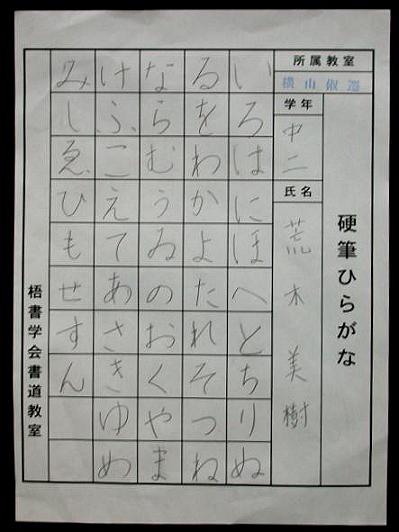 硬筆ひらがな
所属教室
横山
学年
中二
氏名
荒木美樹
いろはにほへとちりぬ
るをわかよたれそつね
ならむうゐのおくやま
けふこえてあさきゆめ
みしゑひもせすん
梧書学会書道教室